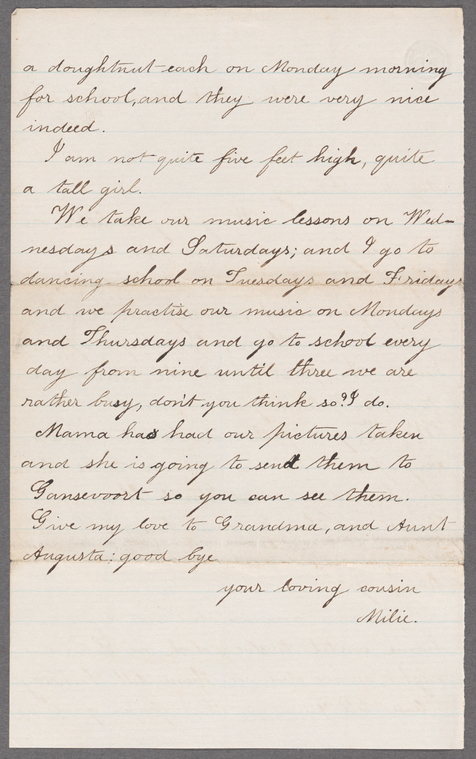 a doughtnut each on Monday morning
for school, and they were very nice
indeed.
I am not quite five feet high, quite
a tall girl.
We take our music lessons on Wed-
nesdays and Saturdays; and I go to
dancing school on Tuesdays and Fridays
and we practise our music on Mondays
and Thursdays and go to school every
day from nine until three we are
rather busy, don't you think so? I do.
Mama has had our pictures taken
and she is going to send them to
Gansevoort so you can see them.
Give my love to Grandma, and Aunt
Augusta: good bye
your loving cousin
Milie.